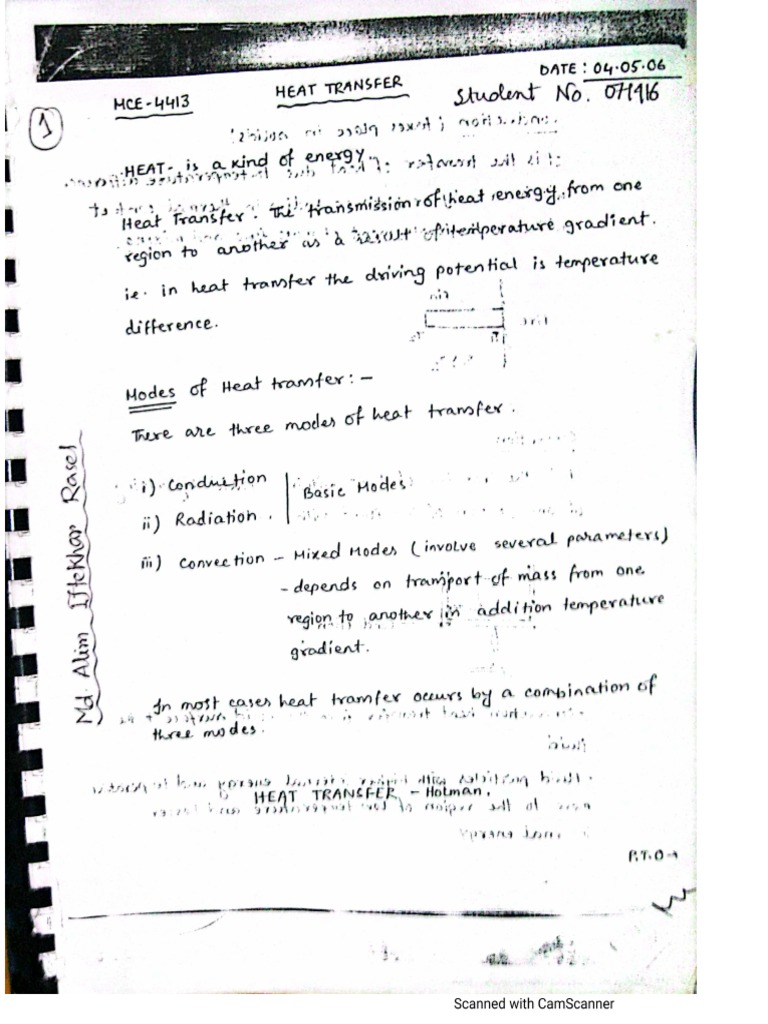 DATE : 04.05.06
MCE-4413
HEAT TRANSFER
Student No.
1
HEAT - is a kind of energy.
Heat Transfer : The transmission of heat energy from one
region to another as a result of temperature gradient.
ie. in heat transfer the driving potential is temperature
difference.
Modes of Heat transfer : -
There are three modes of heat transfer.
i) Conduction
Basic Modes
ii) Radiation .
iii) Convection - Mixed Modes (involve several parameters)
- depends on transport of mass from one
region to another in addition temperature
gradient.
In most cases heat transfer occurs by a combination of
three modes.
HEAT TRANSFER - Holman.
P.T.O →
Md. Alim Iftekhar Rasel
Scanned with CamScanner